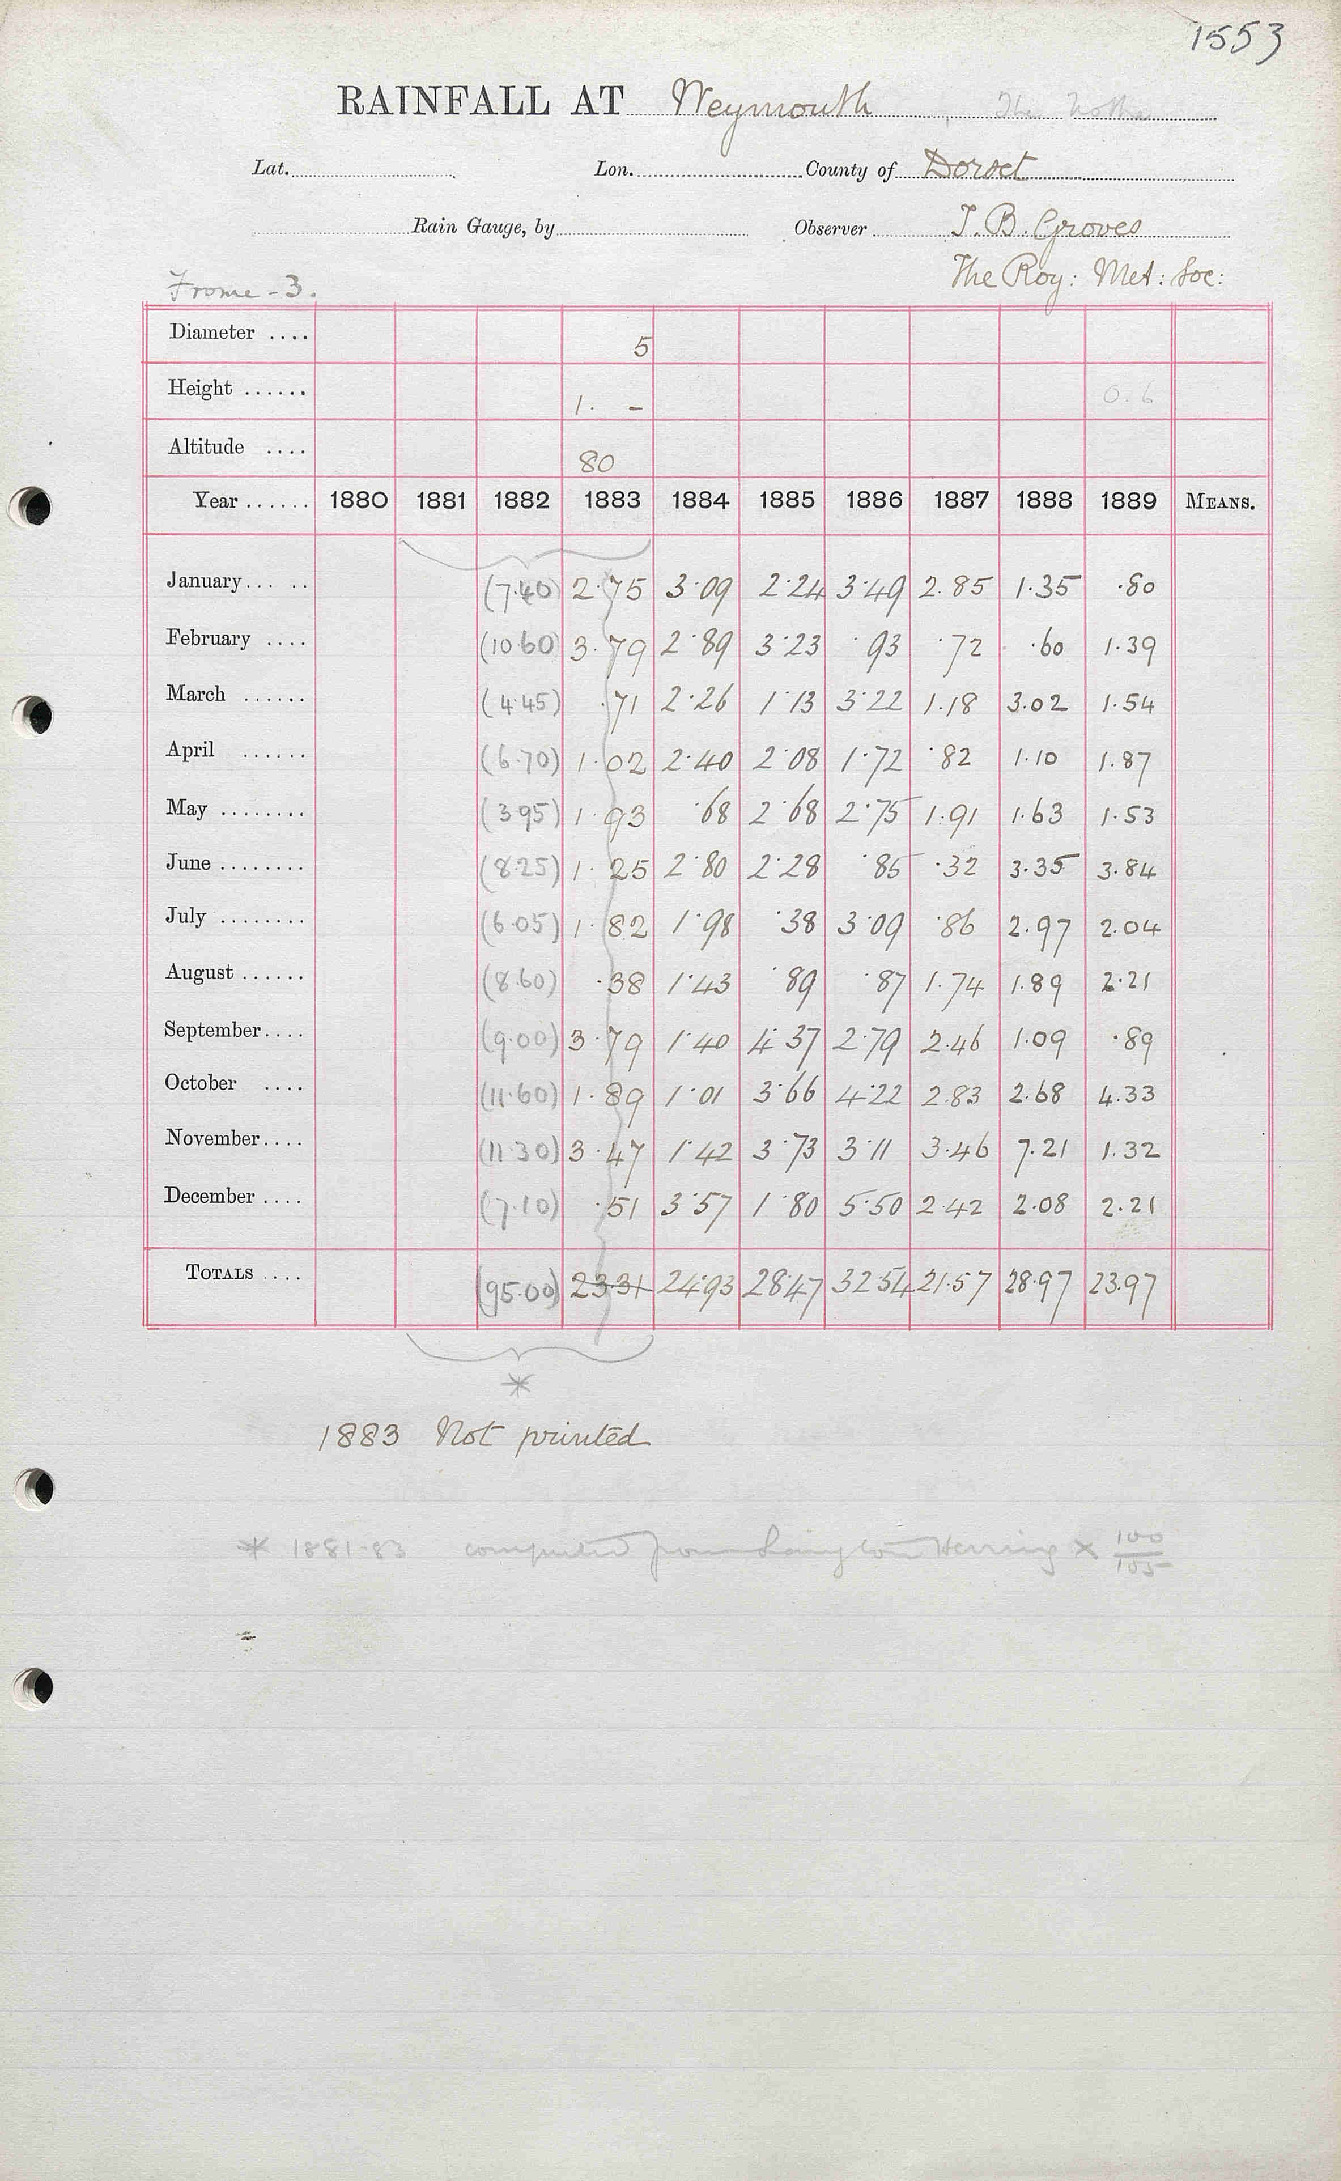 1553
RAINFALL AT Weymouth, The Nothe
Lat. Lon. County of Dorset
Rain Gauge, by Observer T. B. Groves
The Roy: Met: Soc:
Frome - 3.
Diameter .... 5
Height ...... 1. - 0.6
Altitude .... 80
Year ...... 1880 1881 1882 1883 1884 1885 1886 1887 1888 1889 MEANS.
January... .. (7.40) 2.75 3.09 2.24 3.49 2.85 1.35 .80
February .... (10.60) 3.79 2.89 3.23 .93 .72 .60 1.39
March ...... (4.45) .71 2.26 1.13 3.22 1.18 3.02 1.54
April ...... (6.70) 1.02 2.40 2.08 1.72 .82 1.10 1.87
May ........ (3.95) 1.93 .68 2.68 2.75 1.91 1.63 1.53
June ........ (8.25) 1.25 2.80 2.28 .85 .32 3.35 3.84
July ........ (6.05) 1.82 1.98 .38 3.09 .86 2.97 2.04
August ...... (8.60) .38 1.43 .89 .87 1.74 1.89 2.21
September.... (9.00) 3.79 1.40 4.37 2.79 2.46 1.09 .89
October .... (11.60) 1.89 1.01 3.66 4.22 2.83 2.68 4.33
November.... (11.30) 3.47 1.42 3.73 3.11 3.46 7.21 1.32
December .... (7.10) .51 3.57 1.80 5.50 2.42 2.08 2.21
TOTALS .... (95.00) 23.31 24.93 28.47 32.54 21.57 28.97 23.97
*
1883 Not printed
* 1881-83 computed from Langton Herring × 100/105